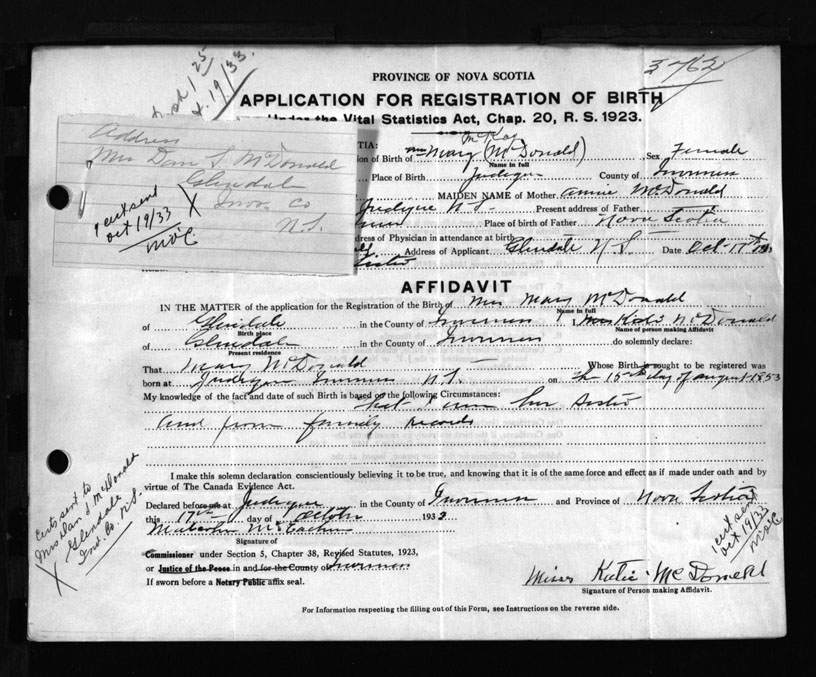 3762
25
19/33.
PROVINCE OF NOVA SCOTIA
APPLICATION FOR REGISTRATION OF BIRTH
Under the Vital Statistics Act, Chap. 20, R. S. 1923.
Address
Mrs Dan S McDonald
Glendale
Inv. Co
N.S.
1 cert sent
Oct 19/33
McC
X
McKay
TIA:
tion of Birth of Mary (McDonald) Sex Female
Name in full
Place of Birth Judique County of Inverness
MAIDEN NAME of Mother Annie McDonald
Judique N S Present address of Father
Place of birth of Father Nova Scotia
dress of Physician in attendance at birth
Address of Applicant Glendale N.S. Date Oct 17th
Sister
AFFIDAVIT
IN THE MATTER of the application for the Registration of the Birth of Mrs Mary McDonald
Name in full
of Glendale in the County of Inverness I, Katie McDonald
Birth place
Name of person making Affidavit
of Glendale in the County of Inverness do solemnly declare:
Present residence
That Mary McDonald Whose Birth is sought to be registered was
born at Judique Inverness N.S. on the 15th day of August 1853
My knowledge of the fact and date of such Birth is based on the following Circumstances:
that I am her Sister
and from family records
I make this solemn declaration conscientiously believing it to be true, and knowing that it is of the same force and effect as if made under oath and by
virtue of The Canada Evidence Act.
Declared before me at Judique in the County of Inverness and Province of Nova Scotia
this 17th day of October 1933
Malcolm McEachen
Signature of
Commissioner under Section 5, Chapter 38, Revised Statutes, 1923,
or Justice of the Peace in and for the County of Inverness
If sworn before a Notary Public affix seal.
Miss Katie McDonald
Signature of Person making Affidavit.
For Information respecting the filling out of this Form, see Instructions on the reverse side.
Certs sent to
Mrs Dan S McDonald
Glendale
Inv. Co. N.S.
X
1 cert sent
Oct 19/33
McC